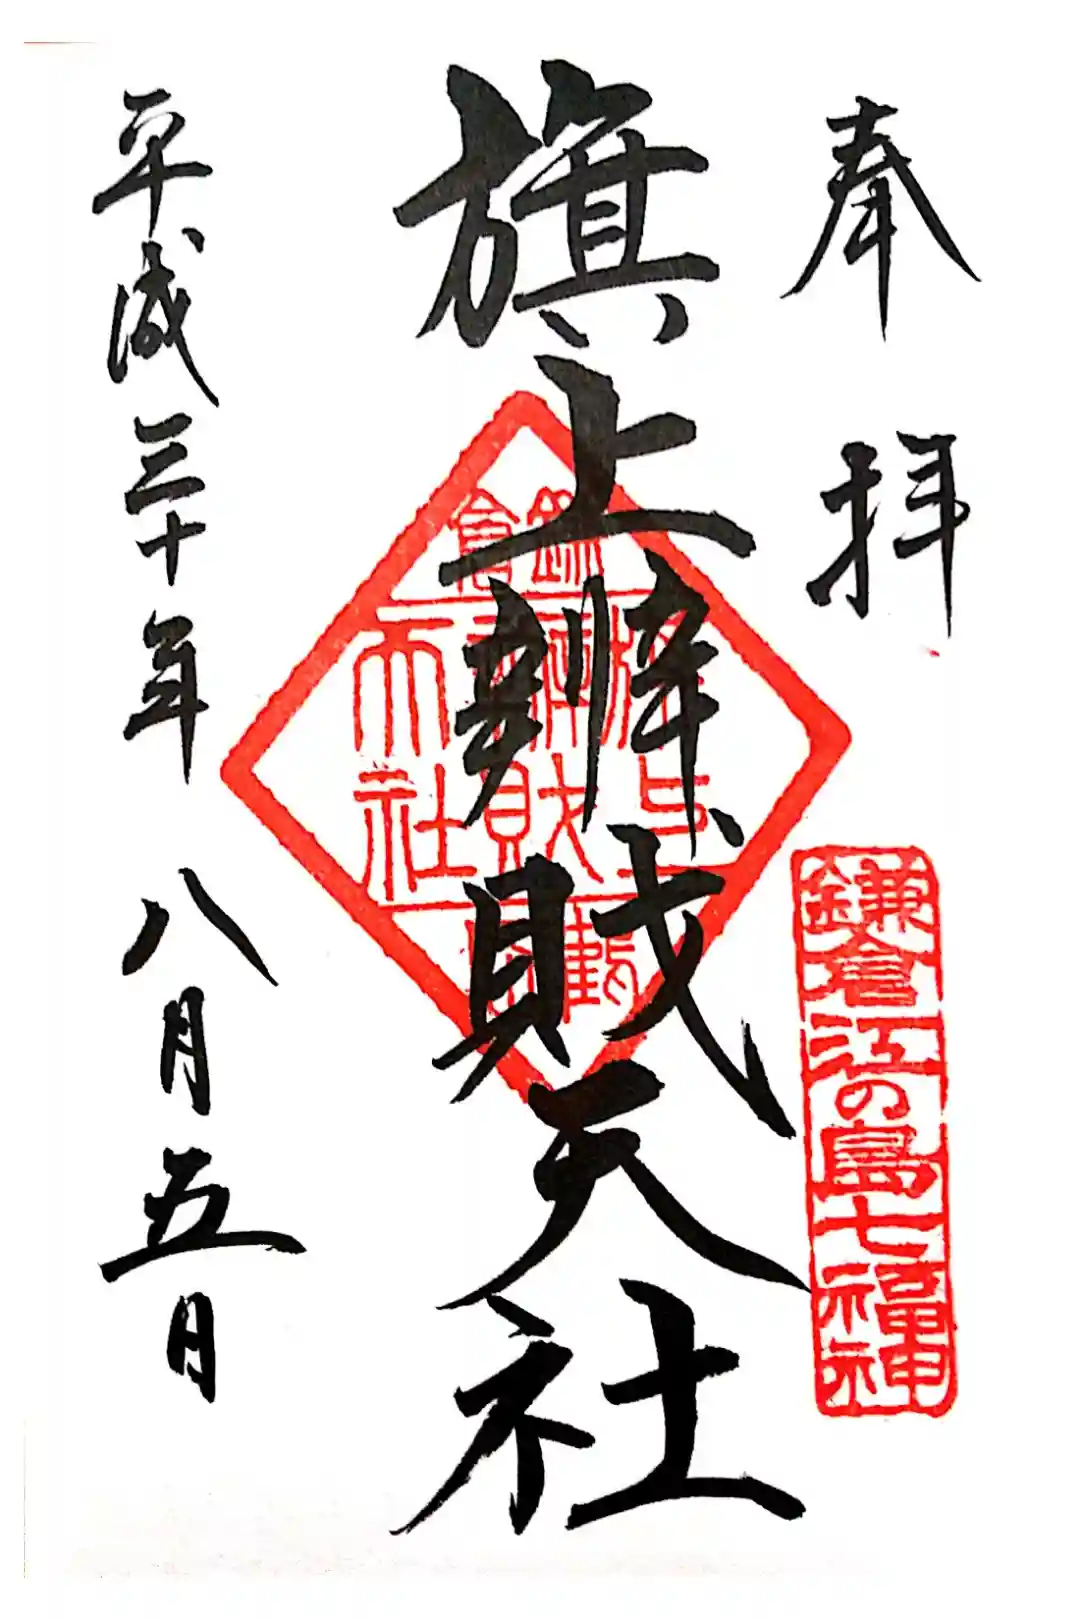 奉拝
鎌倉江の島七福神
旗上辨財天社
鎌倉
旗上
辨財
天社
鶴岡
平成三十年八月五日